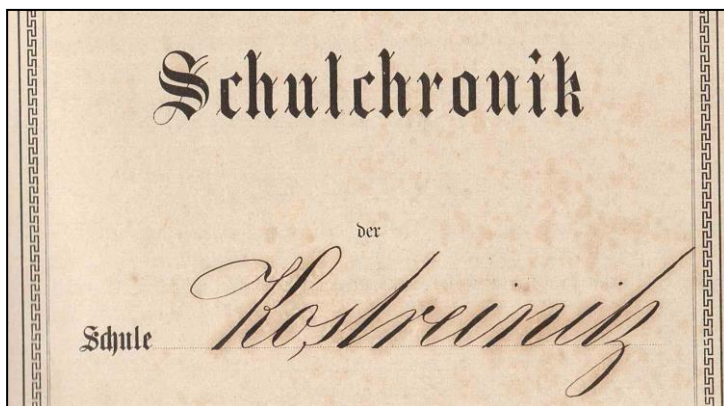 Schulchronik
der
Schule Kostreinitz